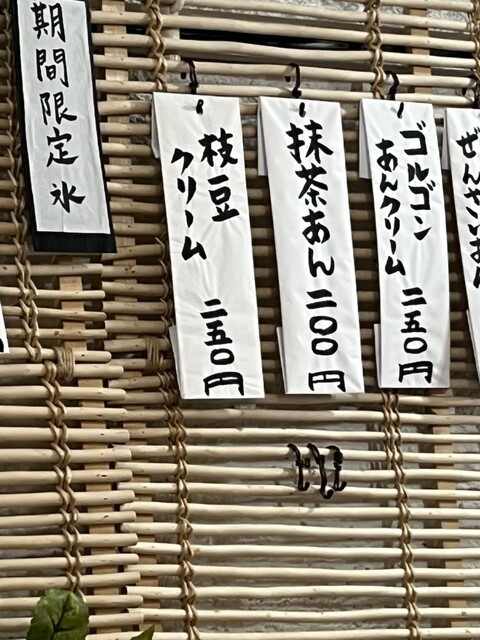 ゴルゴン
あんクリーム
二五〇円
抹茶あん 二〇〇円
枝豆
クリーム
二五〇円
期間限定氷